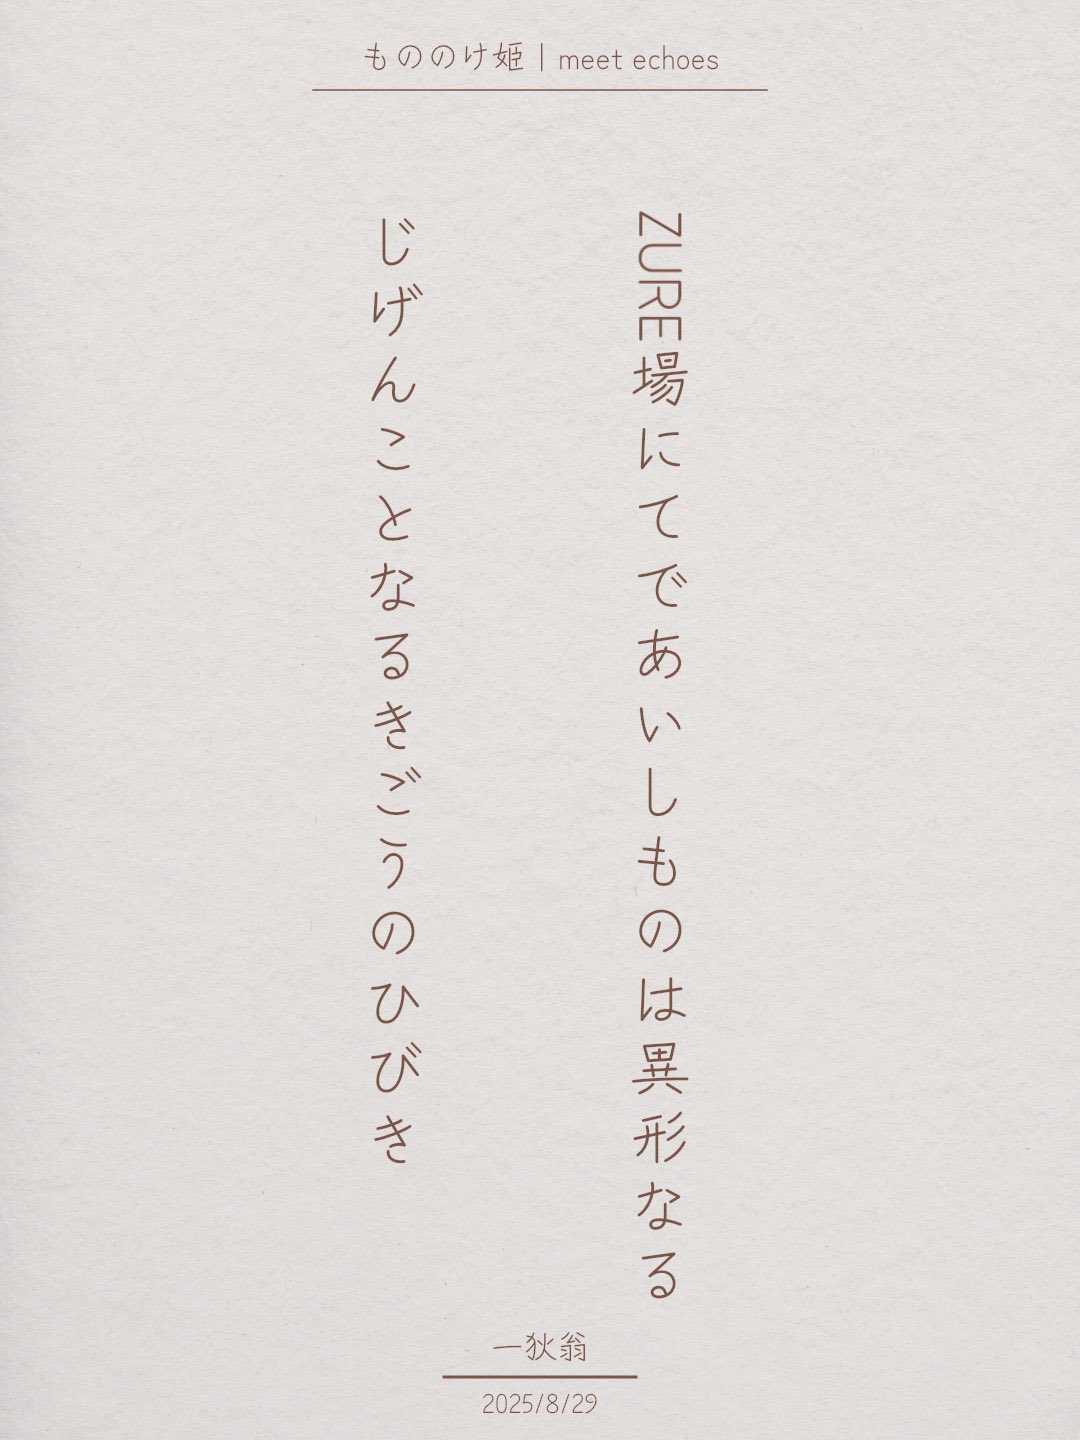 もののけ姫｜meet echoes
ZURE場にてであいしものは異形なる
じげんことなるきごうのひびき
一狄翁
2025/8/29